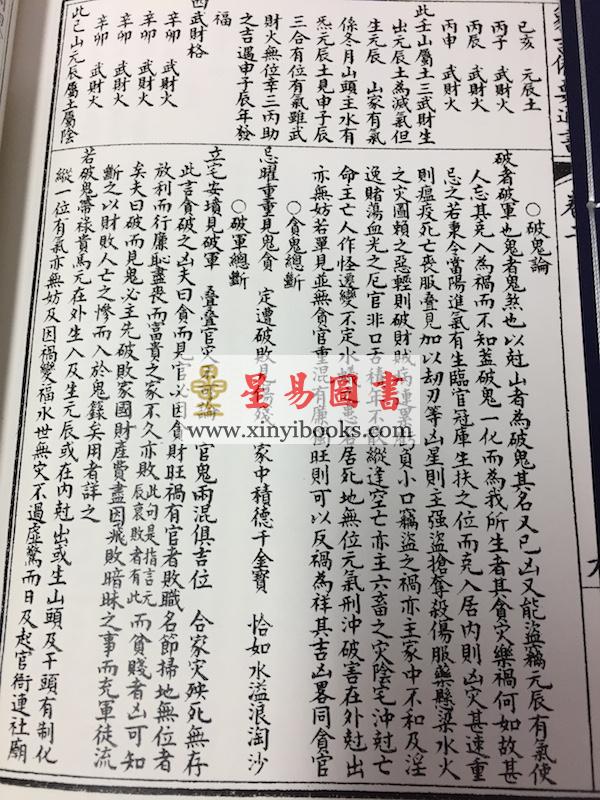 己亥　元辰土
丙子　武財火
丙辰　武財火
丙申　武財火
此壬山屬土三武財生
出元辰土為減氣但
生元辰　山家有氣
係冬月山頭主水有
炁元辰土見申子辰
三合有位有氣雖武
財火無位幸三丙助
之吉遇申子辰年發
福
四武財格
辛卯　武財火
辛卯　武財火
辛卯　武財火
辛卯　武財火
此己山元辰屬土屬陰
○破鬼論
破者破軍也鬼者鬼煞也以尅山者為破鬼其名又已凶又能盜竊元辰有氣使
人忘其克入為禍而不知蓋破鬼一化而為我所生者其貪灾樂禍何如故甚
忌之若秉令當陽進氣有生臨官冠庫生扶之位而克入居內則凶灾甚速重
則瘟疫死亡喪服疊見加以刼刃等凶星則主強盜搶奪殺傷服藥懸梁水火
之灾圖賴之惡輕則破財賊病連
負小口竊盜之禍亦主家中不和及淫
逸賭蕩血光之厄官非口舌積年不
縱逢空亡亦主六畜之灾陰宅沖尅亡
命主亡人作怪遷變不定水
居死地無位元氣刑沖破害在外尅出
亦無妨若單見並無貪官重混有廉
旺則可以反禍為祥其吉凶畧同貪官
○貪鬼總斷
忌曜重重見鬼貪　定遭破敗見
家中積德千金寶　恰如水溢浪淘沙
○破軍總斷
立宅安墳見破軍　疊疊官灾不
官鬼兩混俱吉位　合家灾殃死無存
此言貪破之凶夫曰貪而見官以因貪財旺禍有官者敗職名節掃地無位者
放利而行廉恥盡喪而富貴之家不久亦敗此句是指言元辰衰敗者有此而貧賤者凶可知
矣夫曰破而見鬼必主先破敗家國財產費盡因飛敗暗昧之事而充軍徒流
斷之以財敗人亡之慘而入於鬼籙矣用者詳之
若破鬼帶祿貴馬元在外生入及生元辰或在內尅出或生山頭及干頭有制化
縱一位有氣亦無妨及因禍變福永世無灾不過虛驚而日及起官衙連社廟
星易圖書
www.xinyibooks.com